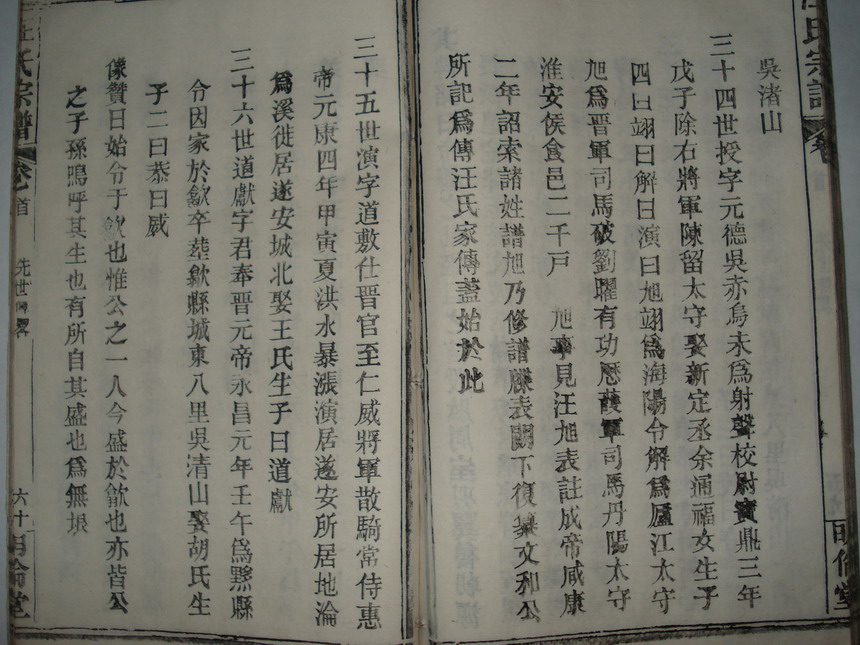 汪氏宗譜 卷
吳渚山
三十四世授字元德吳赤烏末爲射聲校尉寶鼎三年
戊子除右將軍陳留太守娶新定丞余通福女生子
四曰翊曰解曰演曰旭翊爲海陽令解爲廬江太守
旭爲晉軍司馬破劉曜有功歷護軍司馬丹陽太守
淮安侯食邑二千戶 旭事見汪旭表註成帝咸康
二年詔索諸姓譜旭乃修譜牒表闕下復纂文和公
所記爲傳汪氏家傳蓋始於此
明倫堂
三十五世演字道敷仕晉官至仁威將軍散騎常侍惠
帝元康四年甲寅夏洪水暴漲演居遂安所居地淪
爲溪徙居遂安城北娶王氏生子曰道獻
三十六世道獻字君奉晉元帝永昌元年壬午爲黟縣
令因家於歙卒塟歙縣城東八里吳清山娶胡氏生
子二曰恭曰威
像贊曰始令于歙也惟公之一人今盛於歙也亦皆公
之子孫嗚呼其生也有所自其盛也爲無垠
汪氏宗譜 卷首 先世畧 六十 明倫堂